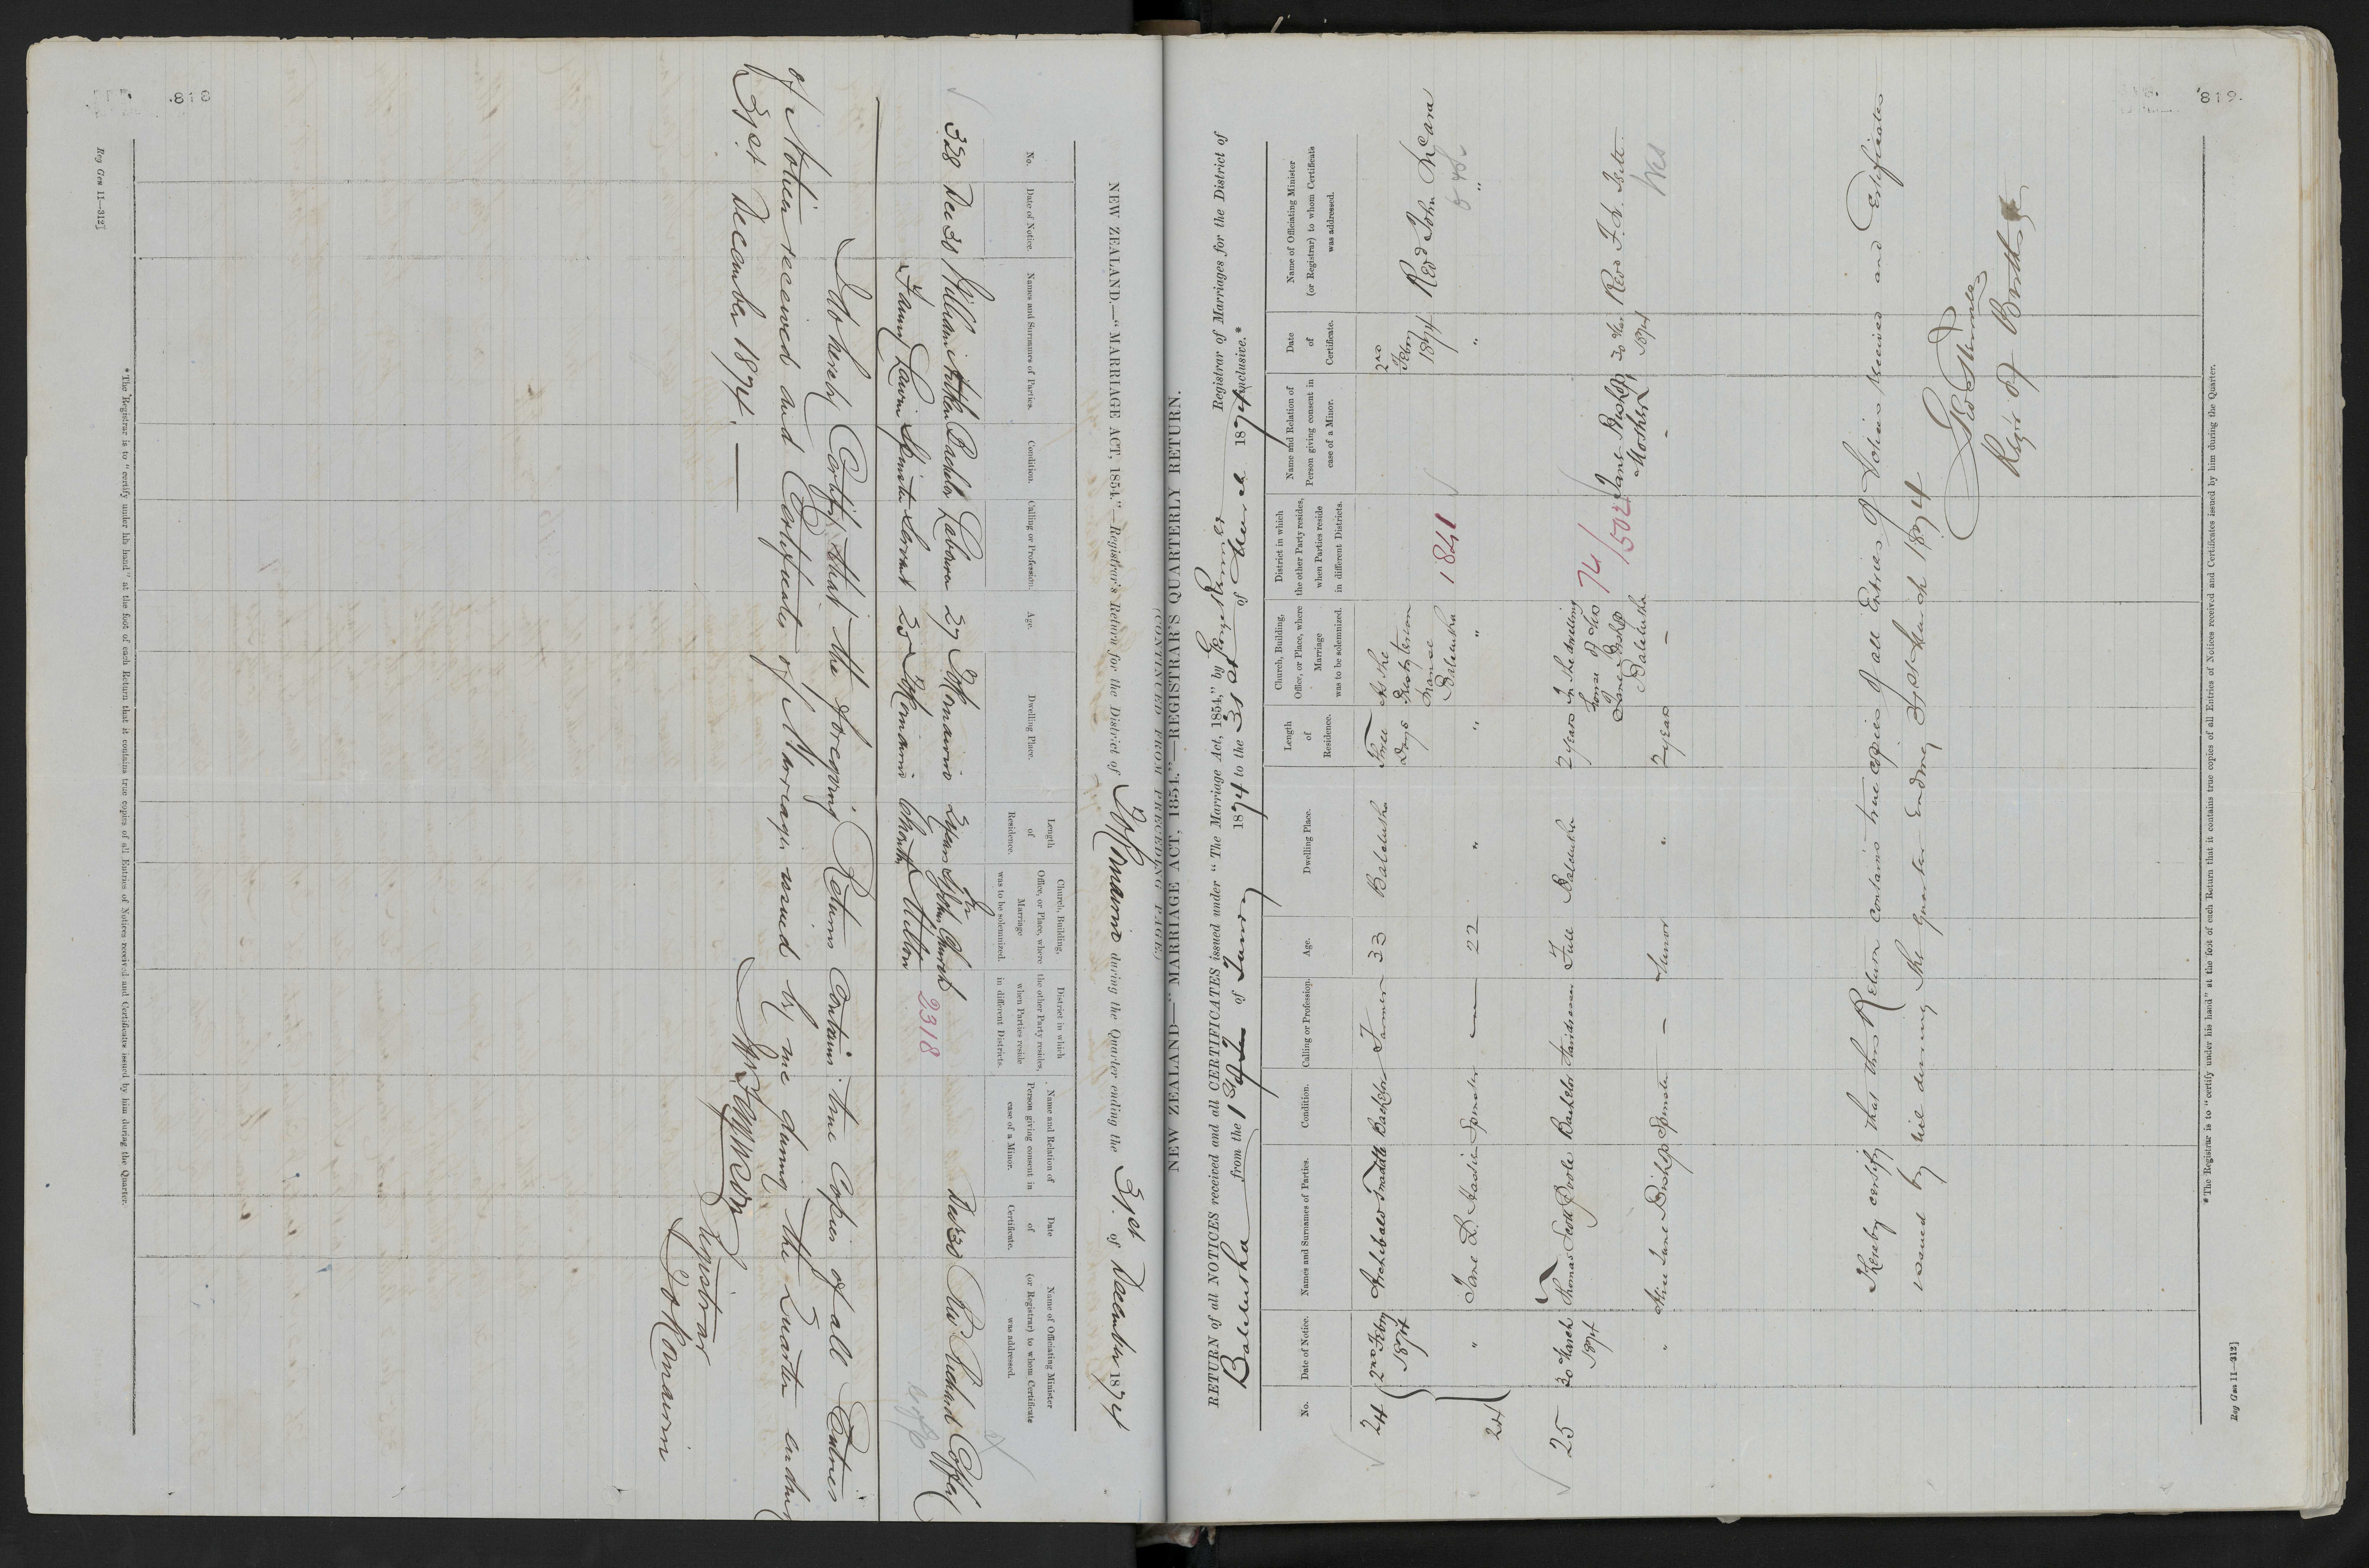 818
NEW ZEALAND.—"MARRIAGE ACT, 1854."—Registrar's Return for the District of Tokomairiro during the Quarter ending the 31st of December 1874
No.
Date of Notice.
Names and Surnames of Parties.
Condition.
Calling or Profession.
Age.
Dwelling Place.
Length
of
Residence.
Church, Building,
Office, or Place, where
Marriage
was to be solemnized.
District in which
the other Party resides,
when Parties reside
in different Districts.
Name and Relation of
Person giving consent in
case of a Minor.
Date
of
Certificate.
Name of Officiating Minister
(or Registrar) to whom Certificate
was addressed.
328 Dec 30 William Bachelor Labourer 27 2 years St John's Church Dec 30 Rev Richard
Fanny Spinster Servant 20 Milton
2318
I do hereby Certify that the foregoing Return Contains true Copies of all Entries
of Notices received and Certificates of Marriage issued by me during the Quarter ending
31st December 1874.—
Registrar
*The Registrar is to "certify under his hand" at the foot of each Return that it contains true copies of all Entries of Notices received and Certificates issued by him during the Quarter.
Reg Gen 11—312]
819.
(CONTINUED FROM PRECEDING PAGE.)
NEW ZEALAND—"MARRIAGE ACT, 1854."—REGISTRAR'S QUARTERLY RETURN.
RETURN of all NOTICES received and all CERTIFICATES issued under "The Marriage Act, 1854," by Registrar of Marriages for the District of
Balclutha from the 1st of 1874 to the 31st of March 1874 inclusive.*
No.
Date of Notice.
Names and Surnames of Parties.
Condition.
Calling or Profession.
Age.
Dwelling Place.
Length
of
Residence.
Church, Building,
Office, or Place, where
Marriage
was to be solemnized.
District in which
the other Party resides,
when Parties reside
in different Districts.
Name and Relation of
Person giving consent in
case of a Minor.
Date
of
Certificate.
Name of Officiating Minister
(or Registrar) to whom Certificate
was addressed.
24 2nd Feby 1874 Archibald Bachelor Farmer 33 Balclutha Three Days At the Presbyterian Manse Balclutha 2nd Feby 1874 Revd John
24 " Jane Spinster — 22 " " " 1841 " "
25 30th March 1874 Thomas Scott Poole Bachelor Full Balclutha 2 years In the dwelling house of Mrs Jane Bishop Balclutha 74/1502 Jane Bishop Mother 30 Mar 1874 Revd
" Alice Jane Bishop Spinster — Minor " 2 years — — Wes
I hereby certify that this Return contains true copies of all Entries of Notices received and Certificates
issued by me during the quarter ending 31st March 1874
Regr of
*The Registrar is to "certify under his hand" at the foot of each Return that it contains true copies of all Entries of Notices received and Certificates issued by him during the Quarter.
Reg Gen 11—312]